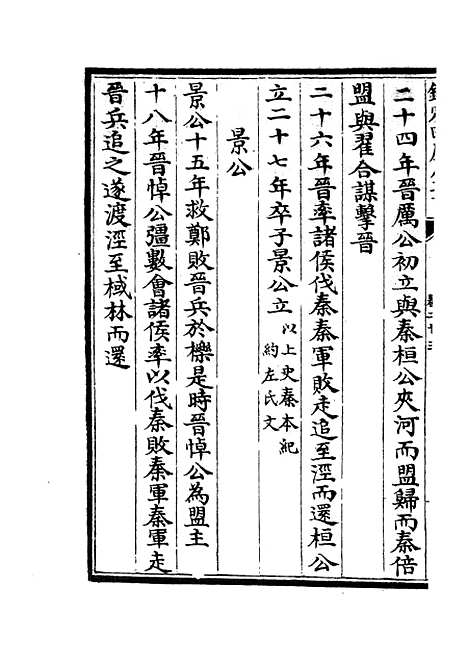 二十四年晉厲公初立與秦桓公夾河而盟歸而秦倍
盟與翟合謀擊晉
二十六年晉率諸侯伐秦秦軍敗走追至涇而還桓公
立二十七年卒子景公立以上史秦本紀
約左氏文
景公
景公十五年救鄭敗晉兵於櫟是時晉悼公為盟主
十八年晉悼公彊數會諸侯率以伐秦敗秦軍秦軍走
晉兵追之遂渡涇至棫林而還